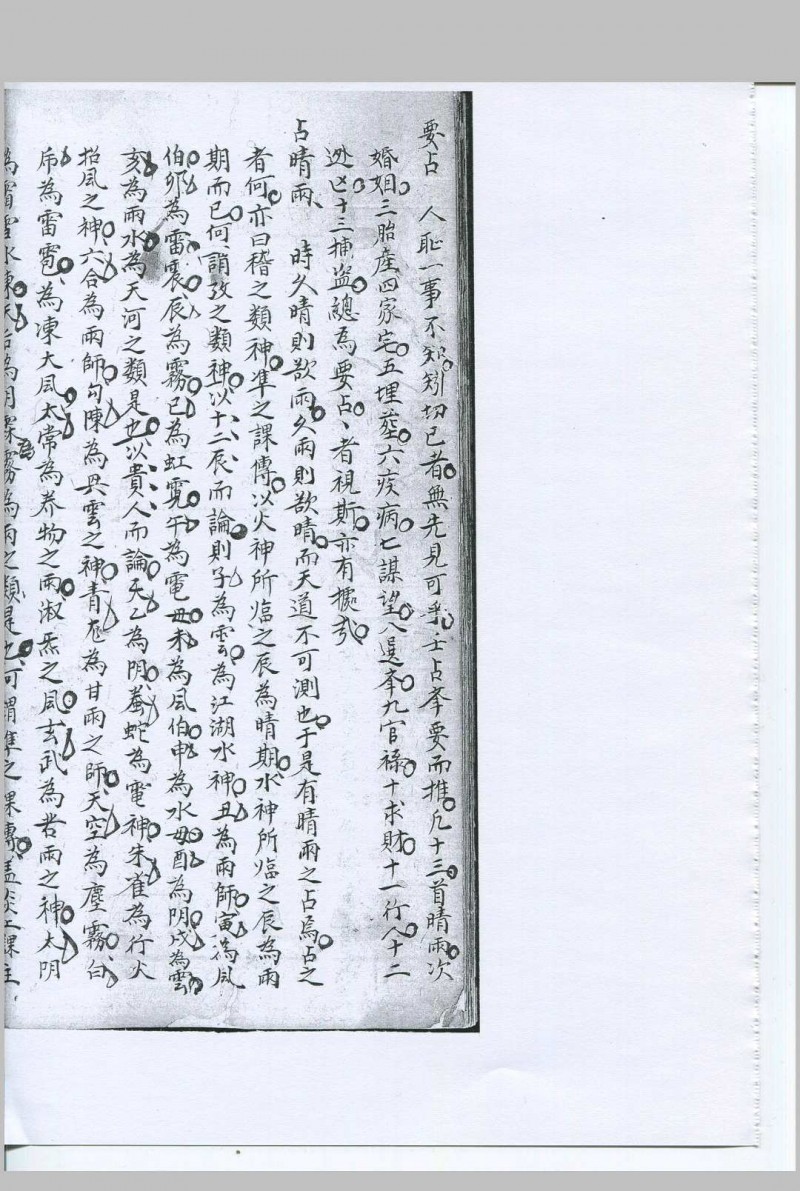 要占　人恥一事不知矧切己者無先見可乎壬占舉要而推凡十三首晴雨次
婚姻三胎產四家宅五埋葬六疾病七謀望八選舉九官祿十求財十一行人十二
逃亡十三捕盜總為要占、者視斯亦有據哉
占晴雨、　時久晴則欲雨久雨則欲晴而天道不可測也于是有晴雨之占焉占之
者何亦曰稽之類神準之課傳以火神所臨之辰為晴期水神所臨之辰為雨
期而已何謂攷之類神以十二辰而論則子為雲為江湖水神丑為雨師寅為風
伯卯為雷震辰為霧巳為虹霓午為電丑未為風伯申為水母酉為陰戌為雲
亥為雨水為天河之類是也以貴人而論天乙為陰螣蛇為電神朱雀為行火
招風之神六合為雨師勾陳為興雲之神青龍為甘雨之師天空為塵霧白
虎為雷雹為凍大風太常為養物之雨淑炁之風玄武為苦雨之神太陰
為霜雪水凍天后為陰深霧為雨之類是也可謂準之課傳蓋